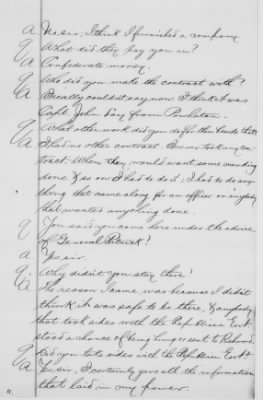 A Yes sir; I think I furnished a company
Q What did they pay you in?
A Confederate money.
Q Who did you make the contract with?
A Really couldn't say now I think it was
Capt John Day from
Q What other work did you do for the Confeds then
A I had no other contract. This was my con-
tract. When they would want some mending
done I had to do it. I had to do any
thing that came along for an officer or anybody
that wanted anything done.
Q You said you came here under the advice
of General Patrick?
A Yes sir.
Q Why didn't you stay there?
A The reason I came was because I didn't
think it was safe to be there, anybody
that took sides with the Republican Govt.
stood a chance of being sent to Richmond.
Q Did you take sides with the Republican Govt
A Yes sir, I certainly give all the information
that laid in my power.